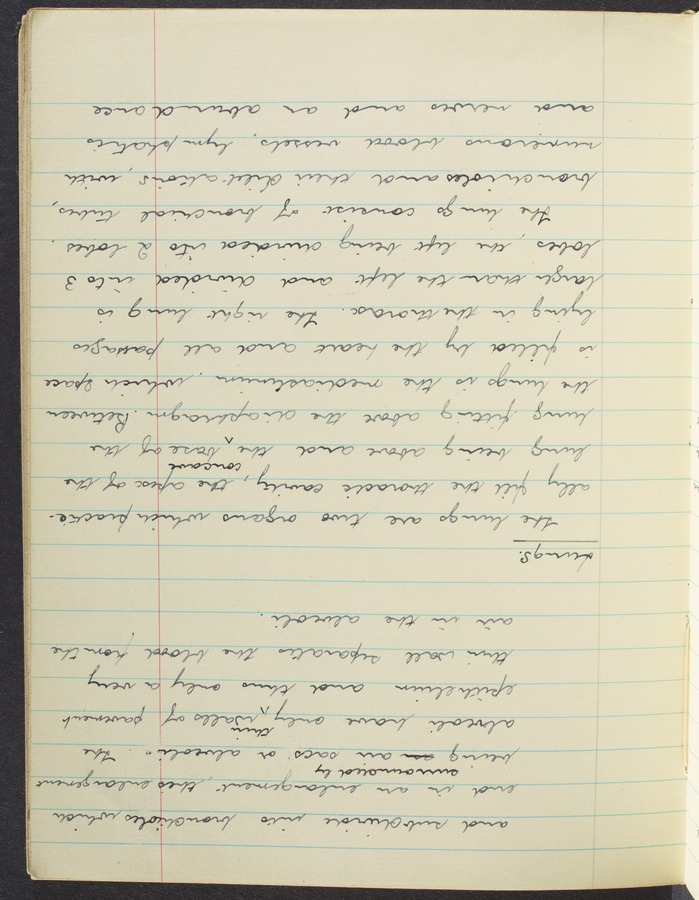 and subdivide into bronchioles, which
end in an enlargement, this enlargement
surrounded by
being an sacs or alveoli. The
thin
alveoli have only walls of pavement
epithelium and thus only a very
thin wall separates the blood from the
air in the alveoli.
Lungs.
The lungs are two organs which practic-
ally fill the thoracic cavity, the apex of the
concave
lung being above and the base of the
lung fitting above the diaphragm. Between
the lungs is the mediastinum, which space
is filled by the heart and all passages
lying in the thorax. The right lung is
larger than the left and divided into 3
lobes, the left being divided into 2 lobes.
The lungs consist of bronchial tubes,
bronchioles and their dilatations, with
numerous blood vessels, lymphatics
and nerves and an abundance